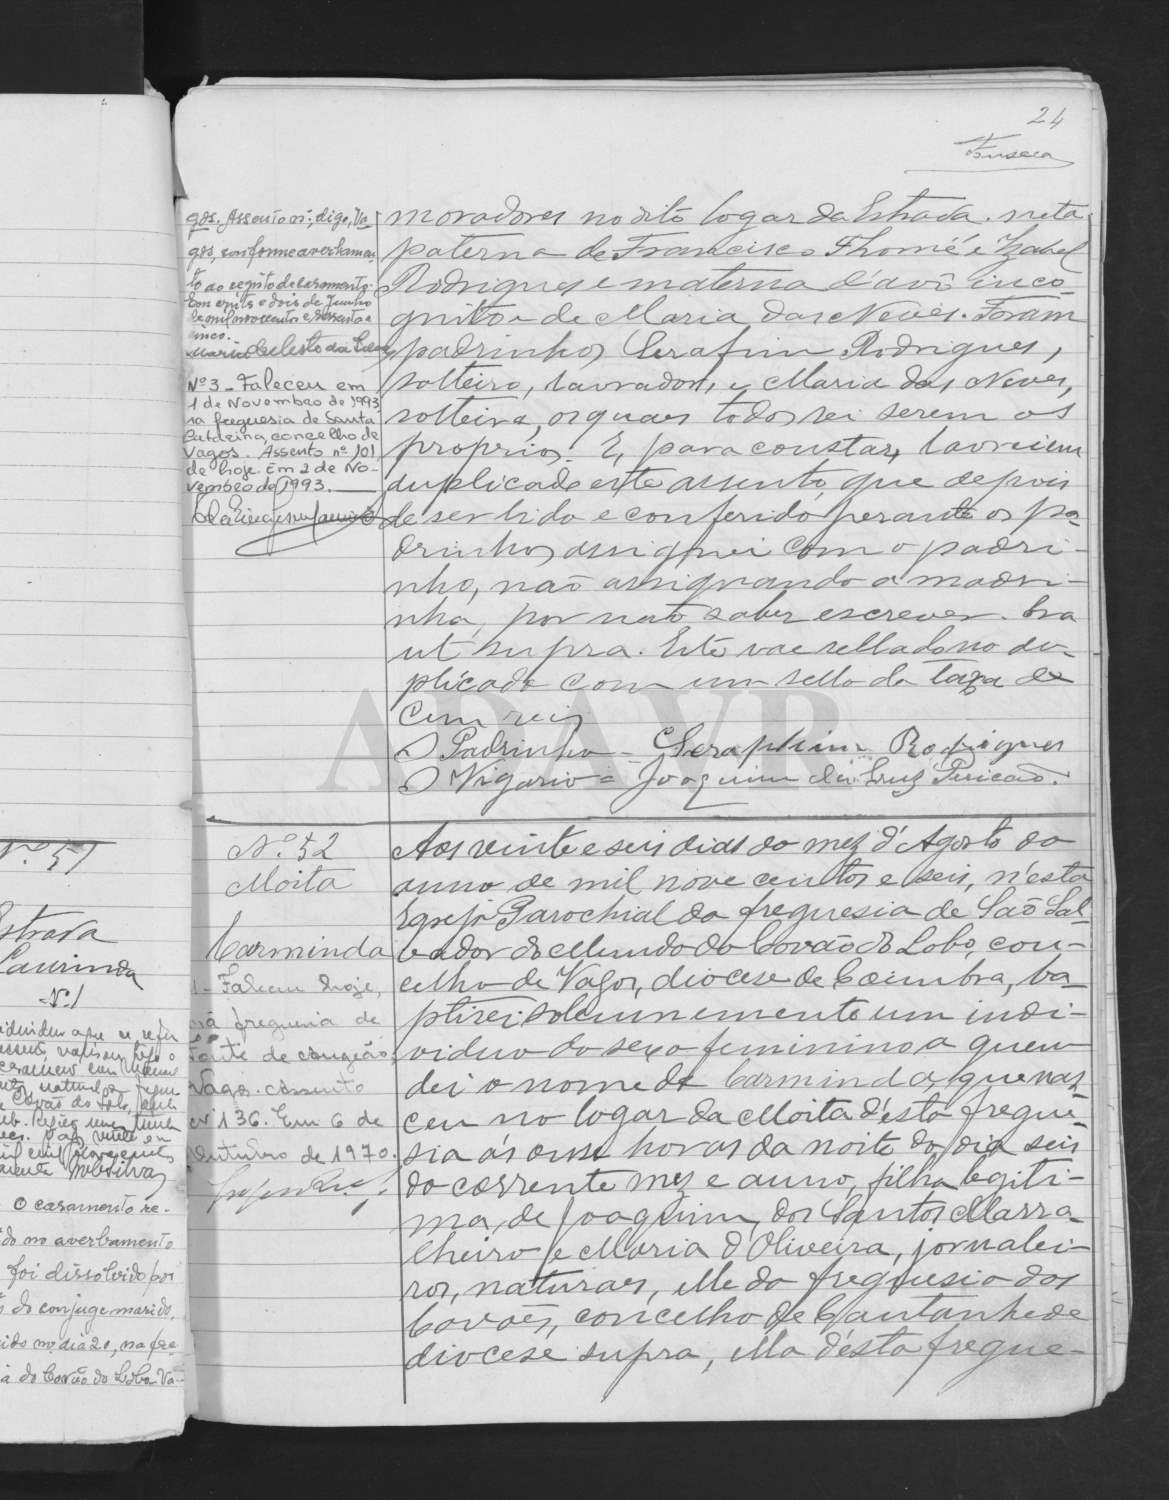 24
Fonseca
gos. Assento nº; digo, Va-
gos, conforme averbamen-
to ao registo de casamento.
Em vinte e dois de Junho
de mil novecentos e sessenta e
cinco.
Maria Celeste da
Nº 3 - Faleceu em
1 de Novembro de 1993
na freguesia de Santa
Catarina, concelho de
Vagos. Assento nº 101
de hoje. Em 2 de No-
vembro de 1993.
moradores no dito logar da Estrada. neta
paterna de Francisco Thomé e Izabel
Rodrigues e materna d'avô incó-
gnito e de Maria das Neves. Foram
padrinhos Serafim Rodrigues,
solteiro, lavrador, e Maria das Neves,
solteira, os quaes todos sei serem os
proprios. E, para constar, lavrei em
duplicado este assento, que depois
de ser lido e conferido perante os pa-
drinhos assignei com o padri-
nho, não assignando a madri-
nha, por não saber escrever. Era
ut supra. Este vae sellado no du-
plicado com um sello da taxa de
cem reis
O Padrinho - Seraphim Rodrigues
O Vigario = Joaquim da Cruz Pericão.
ADAVR
Nº 52
Moita
Carminda
1 - Faleceu hoje,
na freguesia de
Fonte de Angeão,
Vagos. Assento
nº 136. Em 6 de
Outubro de 1970.
Aos vinte e seis dias do mez d'Agosto do
anno de mil nove centos e seis, n'esta
Egreja Parochial da freguesia de São Sal-
vador do Mundo do Covão do Lobo, con-
celho de Vagos, diocese de Coimbra, ba-
ptisei solemnemente um indi-
viduo do sexo feminino a quem
dei o nome de Carminda, que nas-
ceu no logar da Moita d'esta fregue-
sia ás onse horas da noite do dia seis
do corrente mez e anno, filha legiti-
ma, de Joaquim, dos Santos Marra-
lheiro e Maria d'Oliveira, jornalei-
ros, naturaes, elle da freguesia dos
Covões, concelho de Cantanhede
diocese supra, ella d'esta fregue-
Nº 51
Estrada
Laurinda
Nº 1
O casamento re-
do no averbamento
foi dissolvido por
do conjuge marido,
ido no dia 20, na fre-
a do Covão do Lobo Va-